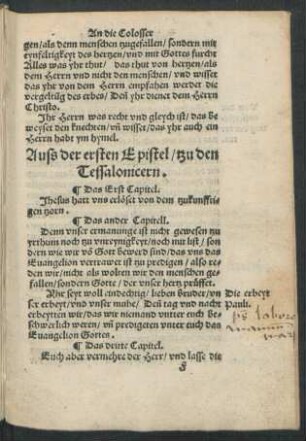 An die Colosser
gen/als denn menschen tzugefallen/ sondern mit
eynfeltigkeyt des hertzen/vnd mit Gottes furcht
Alles was yhr thut/ das thut von hertzen/als
dem Herrn vnd nicht den menschen/ vnd wisset
das yhr von dem Herrn empfahen werdet die
vergeltũg des erbes/ Deñ yhr dienet dem Herrn
Christo.
Ihr Herrn was recht vnd gleych ist/das be
weyset den knechten/vñ wisset/das yhr auch ein
Herrn habt ym hymel.
Auß der ersten Epistel/tzu den
Tessalonicern.
¶ Das Erst Capitel.
Jhesus hatt vns erlöset von dem tzukunfftigen
gen tzorn.
¶ Das ander Capitell.
Denn vnser ermanunge ist nicht gewesen zu
yrthum noch tzu vnreynigkeyt/noch mit list/ son
dern wie wir võ Gott bewerd sind/das vns das
Euangelion vertrawet ist zu predigen/ also re-
den wir/nicht als wolten wir den menschen ge-
fallen/sondern Gotte/ der vnser hertz prüffet.
Ihr seyt woll eindechtig/ lieben bruder/vn
ser erbeyt/vnd vnser muhe/ Deñ tag vnd nacht
erbeytten wir/das wir niemand vntter euch be-
schwerlich weren/ vñ predigeten vnter euch das
Euangelion Gottes.
Die erbeyt
Pauli.
¶ Das dritte Capitel.
Euch aber vermehre der Herr/ vnd lasse die